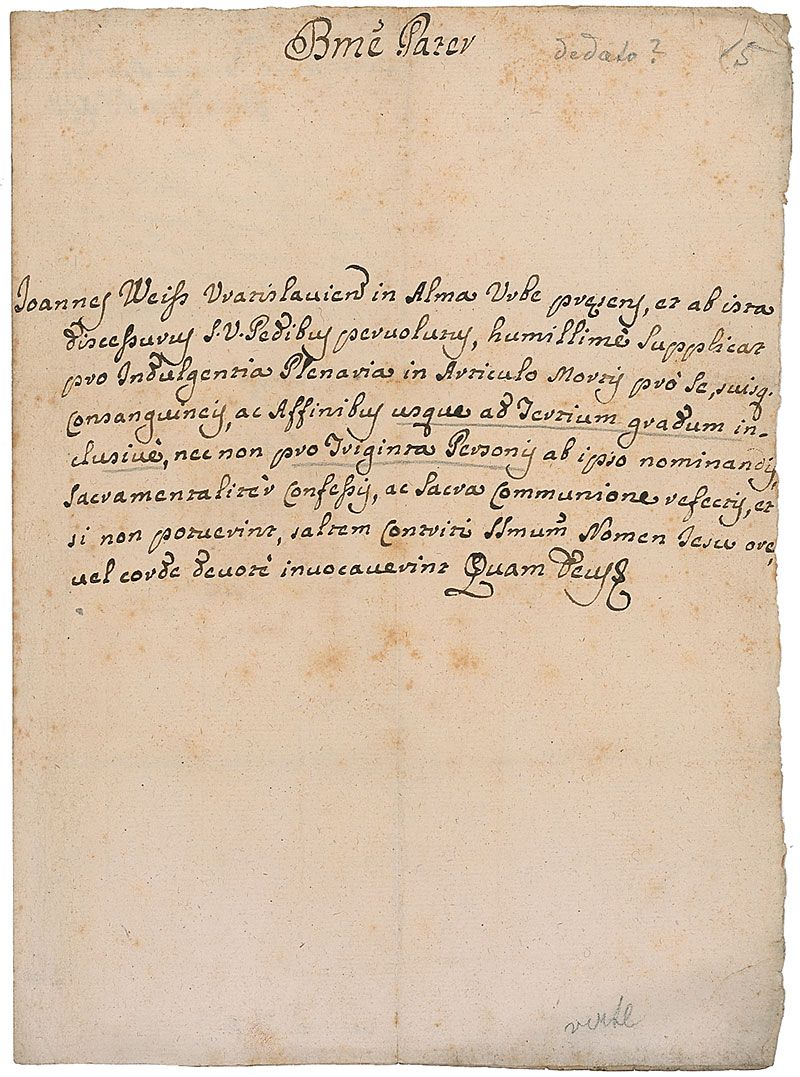 Bmē Pater
dedato?
5
Joannes Weiss Vratislavien in Alma Urbe presens, et ab ista
discessurus S.V. Pedibus pervolutus, humillimè Supplicat
pro Indulgentia Plenaria in Articulo Mortis prò se, suisq.
Consanguineis, ac Affinibus usque ad Tertium gradum in-
clusivè, nec non pro Triginta Personis ab ipso nominandis,
Sacramentalitèr Confessis, ac Sacra Communione refectis, et
si non potuerint, saltem Contriti SSmum Nomen Iesu ore,
vel corde devotè invocaverint Quam Deus
verte